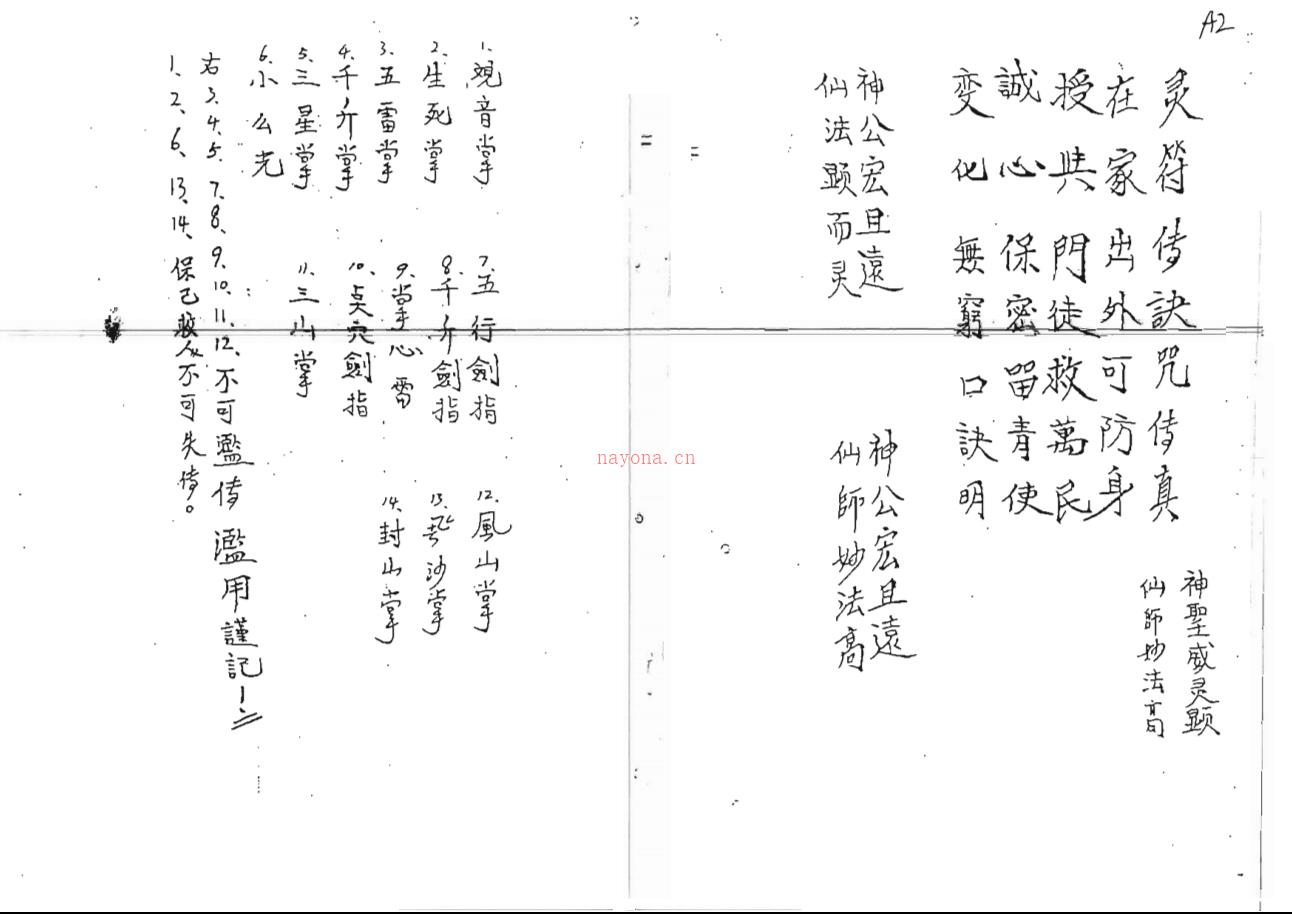 A2
灵符传訣咒传真
在家出外可防身
授共門徒救萬民
誠心保密留青使
变化無窮口訣明
神聖威灵顕
仙師妙法高
神公宏且遠
仙法顕而灵
神公宏且遠
仙師妙法高
1、观音掌
2、生死掌
3、五雷掌
4、千斤掌
5、三星掌
6、小么光
7、五行劍指
8、千斤劍指
9、掌心雷
10、点穴劍指
11、三山掌
12、風山掌
13、飞沙掌
14、封山掌
右3、4、5、7、8、9、10、11、12、不可濫传濫用謹記!
1、2、6、13、14、保己救人不可失传。
nayona.cn